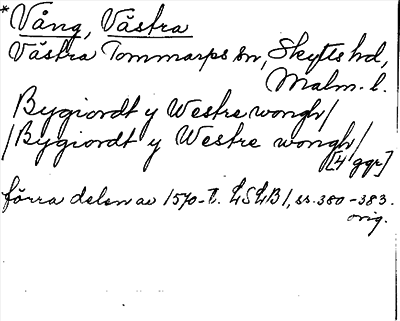 * Vång, Västra
Västra Tommarps sn, Skytts hd,
Malm. l.
Bygiordt y Westre wongh/
/Bygiordt y Westre wongh/
[4 ggr]
förra delen av 1570-t. LSLB 1, ss. 380-383.
orig.